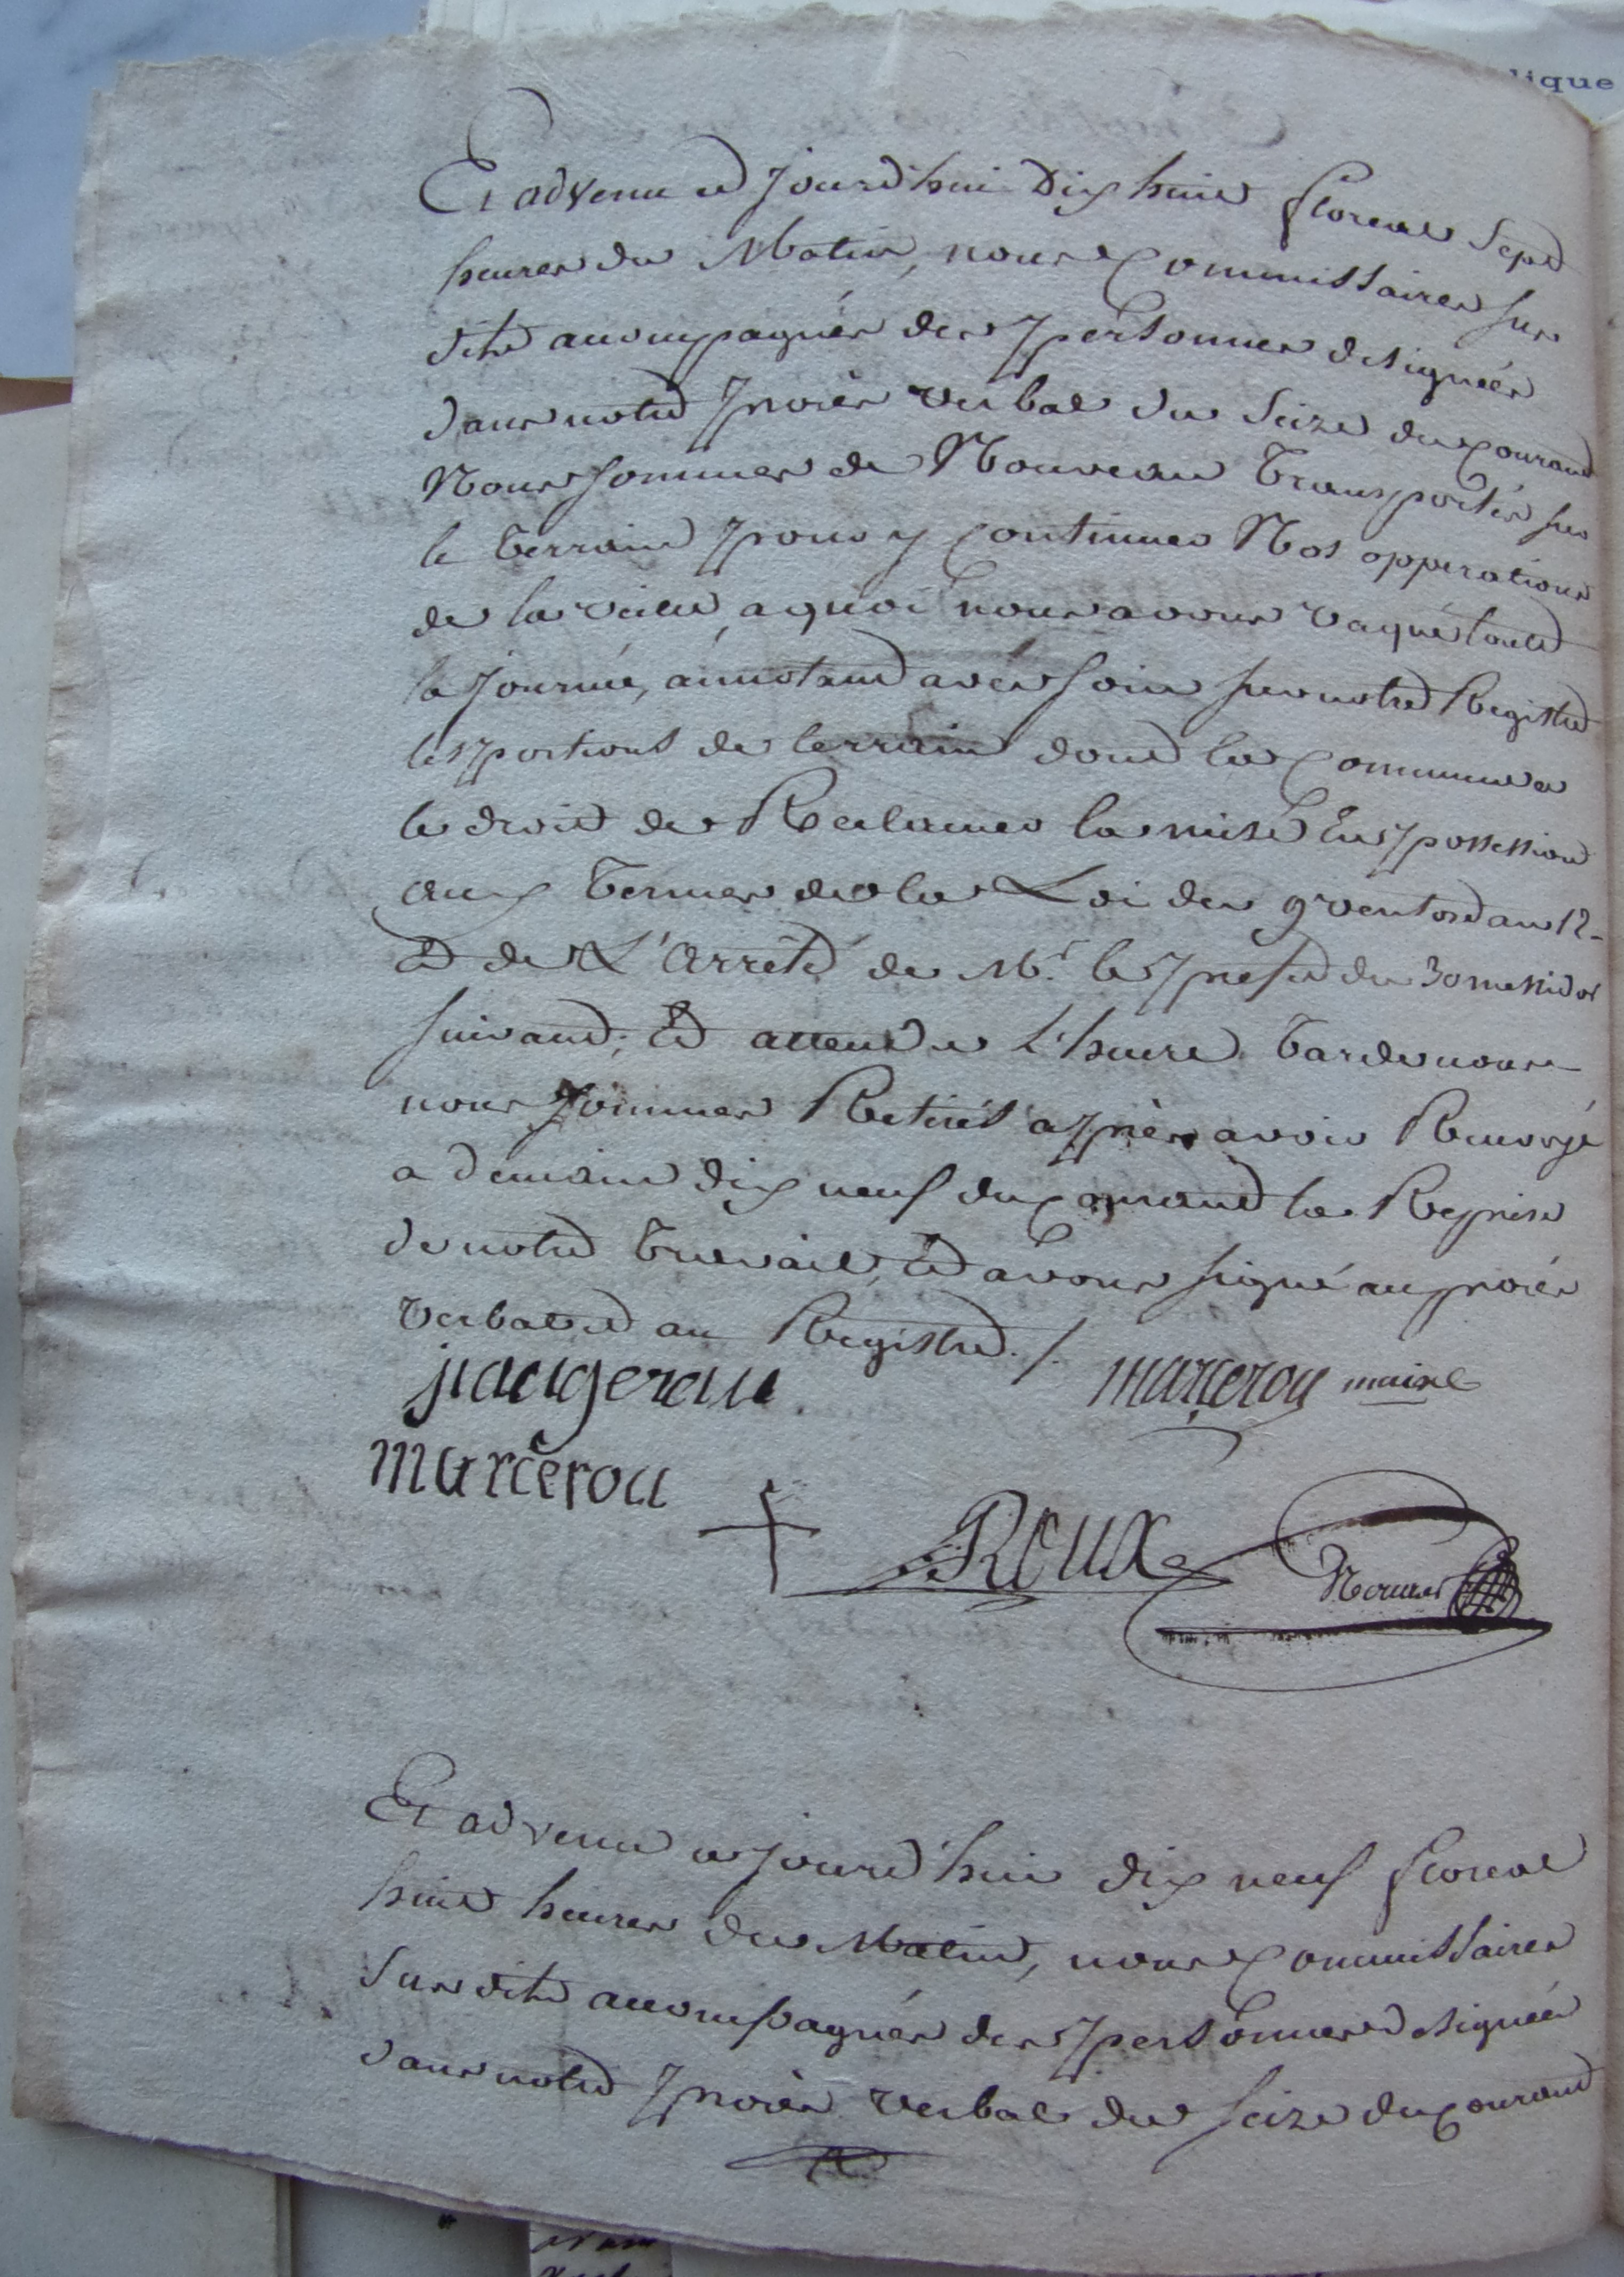 lique
Et advenu ce Jourd'hui Dix huit floreal Sept
heures du Matin, nous Commissaires sus
dits accompagnés des personnes designées
dans notre procès verbal du Seize du Courant
Nous sommes de Nouveau Transportés sur
le Terrain pour y Continuer Nos opperations
de la veille, a quoi nous avons vaqué toute
la Journée, annotant avec soin sur notre Registre
les portions de terrain dont la Commune a
le droit de Reclamer la mise En possession
aux Termes de la Loi du 9 ventose an 12
Et de L'Arrêté de Mr. le prefet du 30 messidor
suivant; Et attendu L'heure Tarde nous
nous sommes Retirés après avoir Renvoyé
a demain dix neuf du Courant la Reprise
de notre Travail, Et avons signé au procès
verbal et au Registre./.
jiaugerau marcerou maire
marcerou
+ Roux
Et advenu ce jourd'hui dix neuf floreal
huit heures du Matin, nous Commissaires
Sus dits accompagnés des personnes designées
dans notre procès verbal du seize du Courant